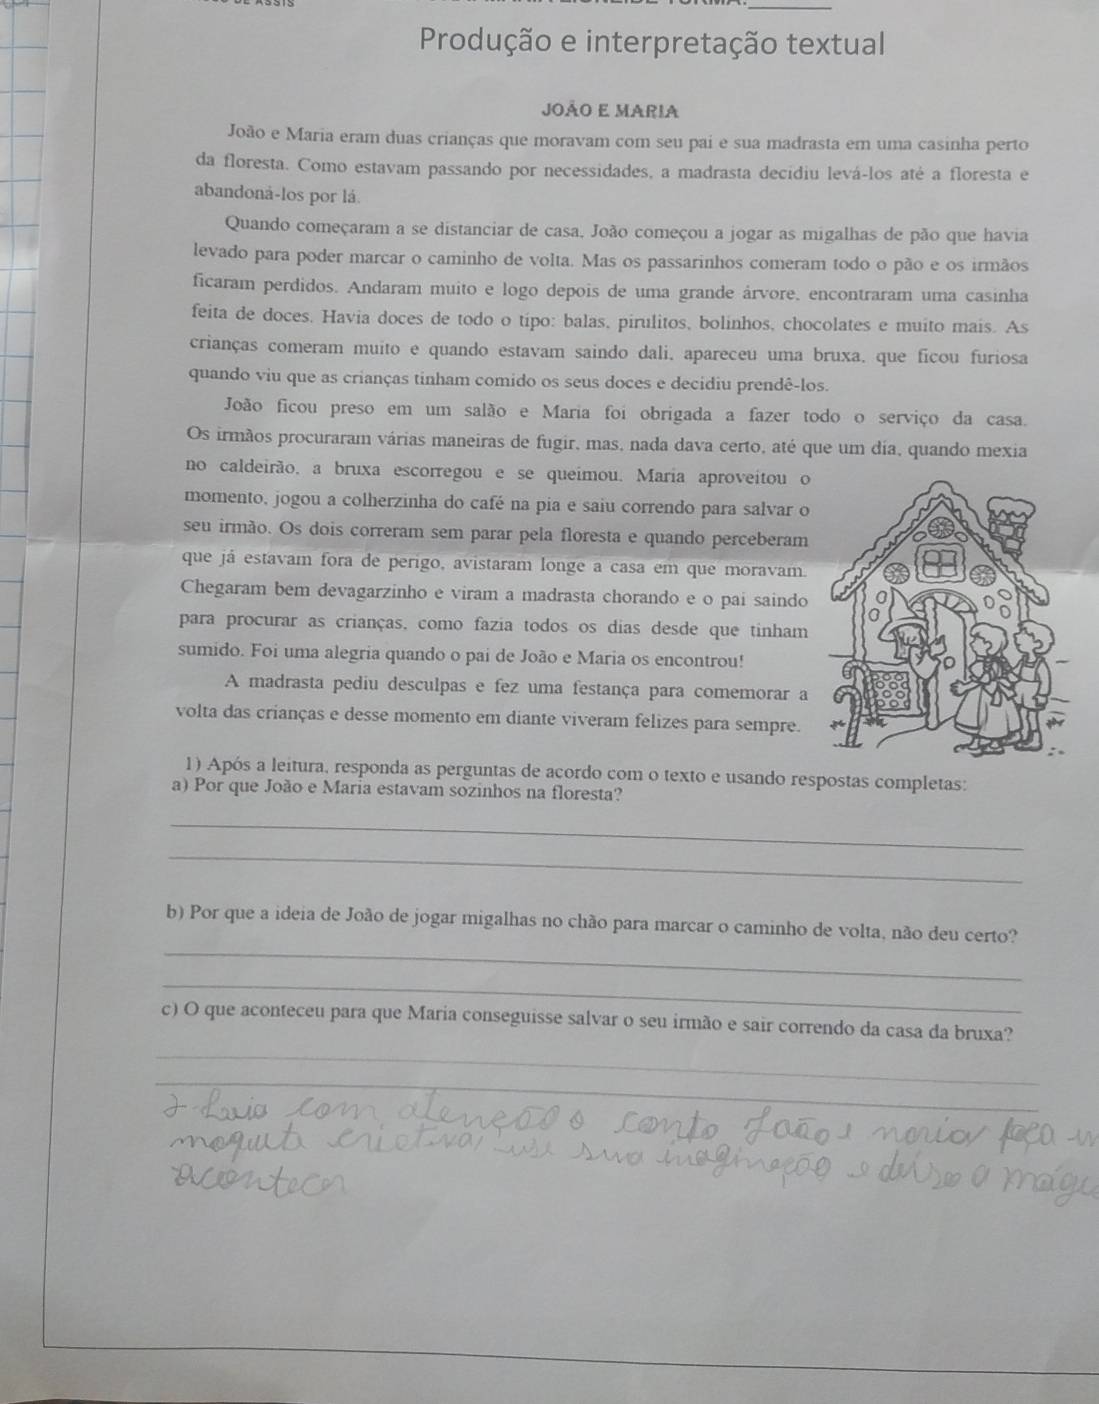 Produção e interpretação textual
JOÃO E MARIA
João e Maria eram duas crianças que moravam com seu pai e sua madrasta em uma casinha perto
da floresta. Como estavam passando por necessidades, a madrasta decidiu levá-los até a floresta e
abandoná-los por lá.
Quando começaram a se distanciar de casa, João começou a jogar as migalhas de pão que havia
levado para poder marcar o caminho de volta. Mas os passarinhos comeram todo o pão e os irmãos
ficaram perdidos. Andaram muito e logo depois de uma grande árvore, encontraram uma casinha
feita de doces. Havia doces de todo o tipo: balas, pirulitos, bolinhos, chocolates e muito mais. As
crianças comeram muito e quando estavam saindo dali, apareceu uma bruxa, que ficou furiosa
quando viu que as crianças tinham comido os seus doces e decidiu prendê-los.
João ficou preso em um salão e Maria foi obrigada a fazer todo o serviço da casa.
Os irmãos procuraram várias maneiras de fugir, mas, nada dava certo, até que um dia, quando mexia
no caldeirão, a bruxa escorregou e se queimou. Maria aproveitou o
momento, jogou a colherzinha do café na pia e saiu correndo para salvar o
seu irmão. Os dois correram sem parar pela floresta e quando perceberam
que já estavam fora de perigo, avistaram longe a casa em que moravam.
Chegaram bem devagarzinho e viram a madrasta chorando e o pai saindo
para procurar as crianças, como fazia todos os dias desde que tinham
sumido. Foi uma alegria quando o pai de João e Maria os encontrou!
A madrasta pediu desculpas e fez uma festança para comemorar a
volta das crianças e desse momento em diante viveram felizes para sempre.
1) Após a leitura, responda as perguntas de acordo com o texto e usando respostas completas:
a) Por que João e Maria estavam sozinhos na floresta?
b) Por que a ideia de João de jogar migalhas no chão para marcar o caminho de volta, não deu certo?
c) O que aconteceu para que Maria conseguisse salvar o seu irmão e sair correndo da casa da bruxa?
com atenção o conto João e maria faça
sua imaginação e deixe a
acontecer